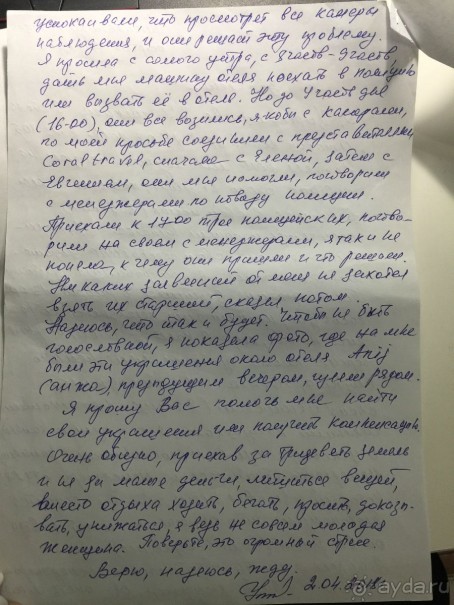 успокаивали, что просмотрят все камеры
наблюдения, и они решат эту проблему.
Я просила с самого утра, с 8 часов - 9 часов
дать мне машину отеля поехать в полицию
или вызвать её в отель. Но до 4 часов дня
(16-00), они все возились, якобы с камерами,
по моей просьбе соединили с представителями
Coral travel, сначала с Еленой, затем с
Евгением, они мне помогли, поговорили
с менеджерами по поводу полиции.
Приехали к 17.00 трое полицейских, погово-
рили на своем с менеджерами, я так и не
поняла, к чему они пришли и что решили.
Никаких заявлений от меня не захотел
взять их старший, сказал потом.
Надеюсь, что так и будет. Чтобы не быть
голословной, я показала фото, где на мне
были эти украшения около отеля Anjj
(анжа), предыдущим вечером, гуляли рядом.
Я прошу Вас помочь мне найти
свои украшения или получить компенсацию.
Очень обидно, приехав за тридевять земель
и не за малые деньги, лишиться вещей,
вместо отдыха ходить, бегать, просить, доказы-
вать, унижаться, я ведь не совсем молодая
женщина. Поверьте, это огромный стресс.
Верю, надеюсь, жду.
2.04.2018г.
ayda.ru